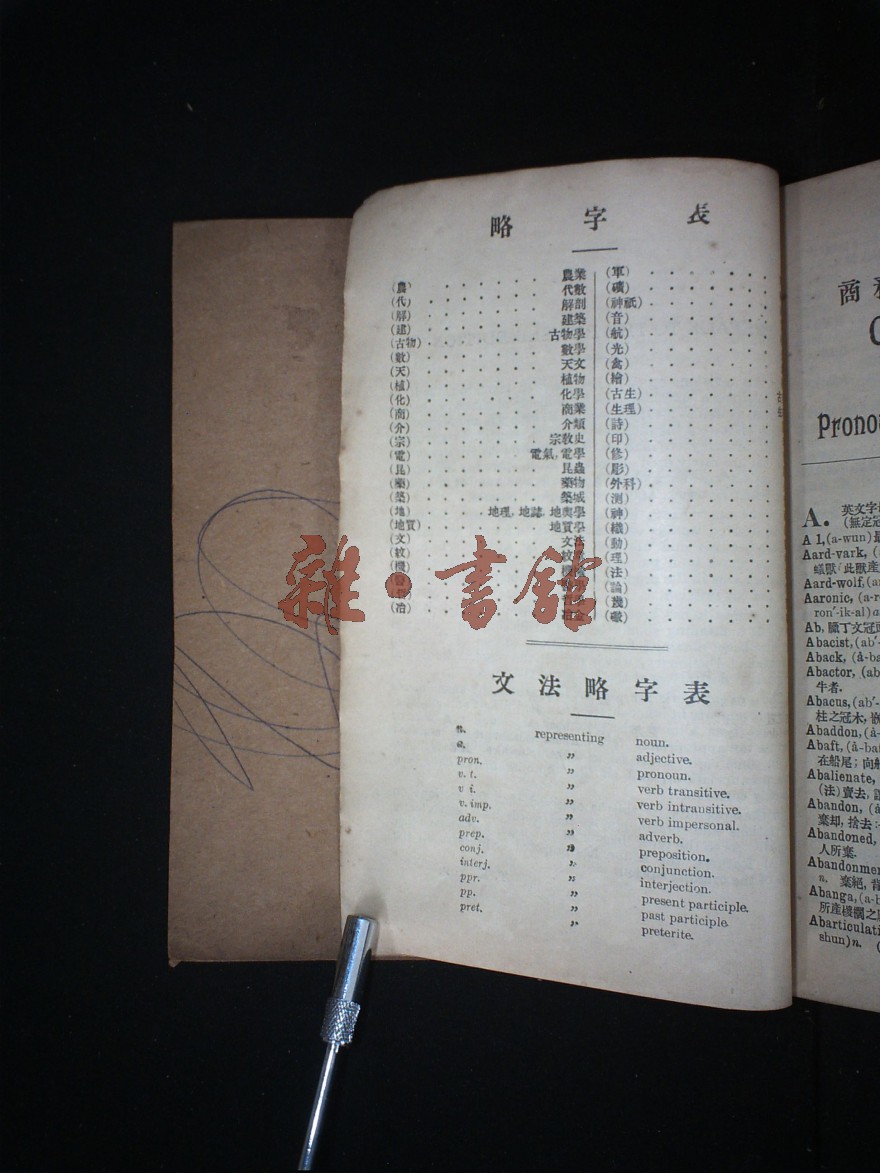 略字表
(農) 農業
(代) 代數
(解) 解剖
(建) 建築
(古物) 古物學
(數) 數學
(天) 天文
(植) 植物
(化) 化學
(商) 商業
(介) 介類
(宗) 宗敎史
(電) 電氣, 電學
(昆) 昆蟲
(藥) 藥物
(築) 築城
(地) 地理, 地誌, 地輿學
(地質) 地質學
(文) 文法
(紋)
(機)
(冶)
(軍)
(礦)
(神祇)
(音)
(航)
(光)
(禽)
(繪)
(古生)
(生理)
(詩)
(印)
(修)
(彫)
(外科)
(測)
(神)
(織)
(動)
(理)
(法)
(論)
(幾)
雜·書館
文法略字表
n. representing noun.
a. " adjective.
pron. " pronoun.
v. t. " verb transitive.
v i. " verb intransitive.
v. imp. " verb impersonal.
adv. " adverb.
prep. " preposition.
conj. " conjunction.
interj. " interjection.
ppr. " present participle.
pp. " past participle
pret. " preterite.
商
A. 英文字
(無定冠
A 1, (a-wun)
Aard-vark, (
蟻獸(此獸產
Aard-wolf, (
Aaronic, (a-r
ron'-ik-al) a
Ab, 臘丁文冠
Abacist, (ab'-
Aback, (â-ba
Abactor, (ab
牛者.
Abacus, (ab'-
柱之冠木,
Abaddon, (â-
Abaft, (â-baf
在船尾; 向
Abalienate,
(法) 賣去,
Abandon, (â
棄却, 捨去
Abandoned,
人所棄.
Abandonmen
n. 棄絕,
Abanga, (a-b
所產
Abarticulati
shun) n. (